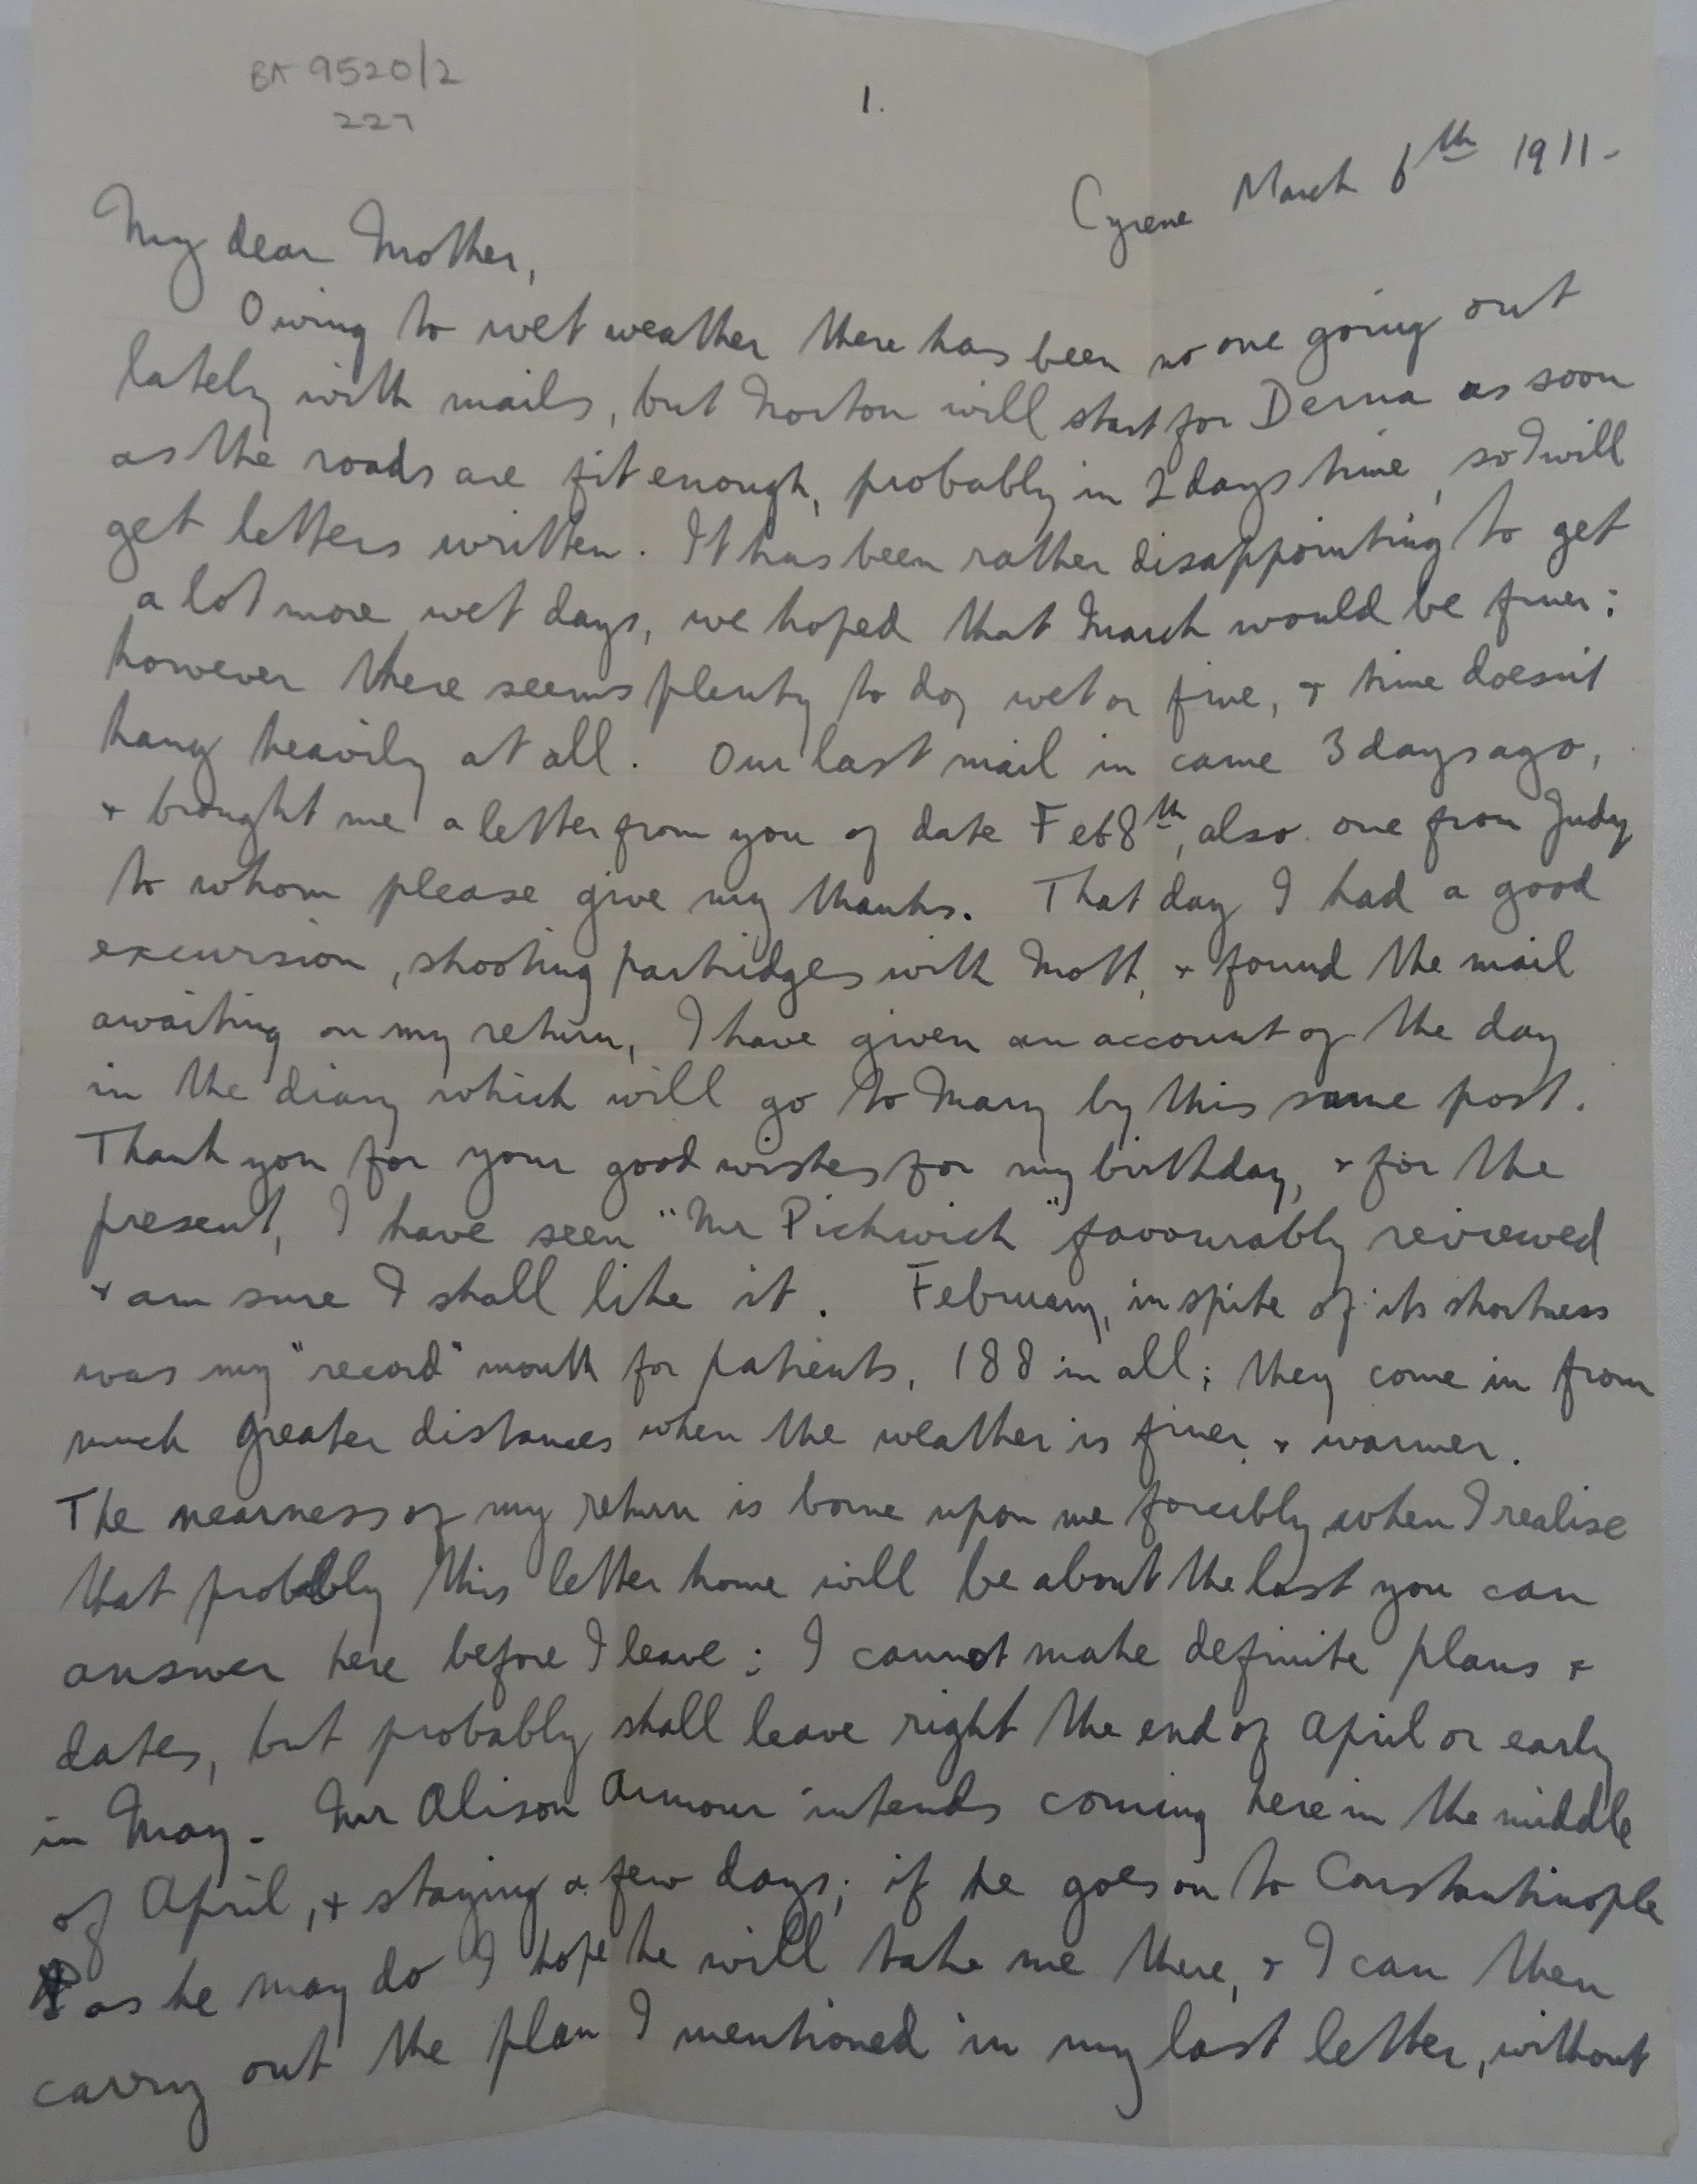 BA 9520/2
227
1.
Cyrene March 6th 1911-
My dear Mother,
Owing to wet weather there has been no one going out
lately with mails, but Norton will start for Derna as soon
as the roads are fit enough, probably in 2 days time, so I will
get letters written. It has been rather disappointing to get
a lot more wet days, we hoped that March would be finer;
however there seems plenty to do, wet or fine, + time doesn't
hang heavily at all. Our last mail in came 3 days ago,
+ brought me a letter from you of date Feb 8th, also one from Judy
to whom please give my thanks. That day I had a good
excursion, shooting partridges with Mott, + found the mail
awaiting on my return, I have given an account of the day
in the diary which will go to Mary by this same post.
Thank you for your good wishes for my birthday, + for the
present, I have seen "Mr Pickwick" favourably reviewed
+ am sure I shall like it. February, in spite of its shortness
was my "record" month for patients, 188 in all; they come in from
much greater distances when the weather is finer + warmer.
The nearness of my return is borne upon me forcibly when I realise
that probably this letter home will be about the last you can
answer here before I leave; I cannot make definite plans +
dates, but probably shall leave right the end of April or early
in May. Mr Alison Armour intends coming here in the middle
of April, + staying a few days; if he goes on to Constantinople
as he may do I hope he will take me there, + I can then
carry out the plan I mentioned in my last letter, without